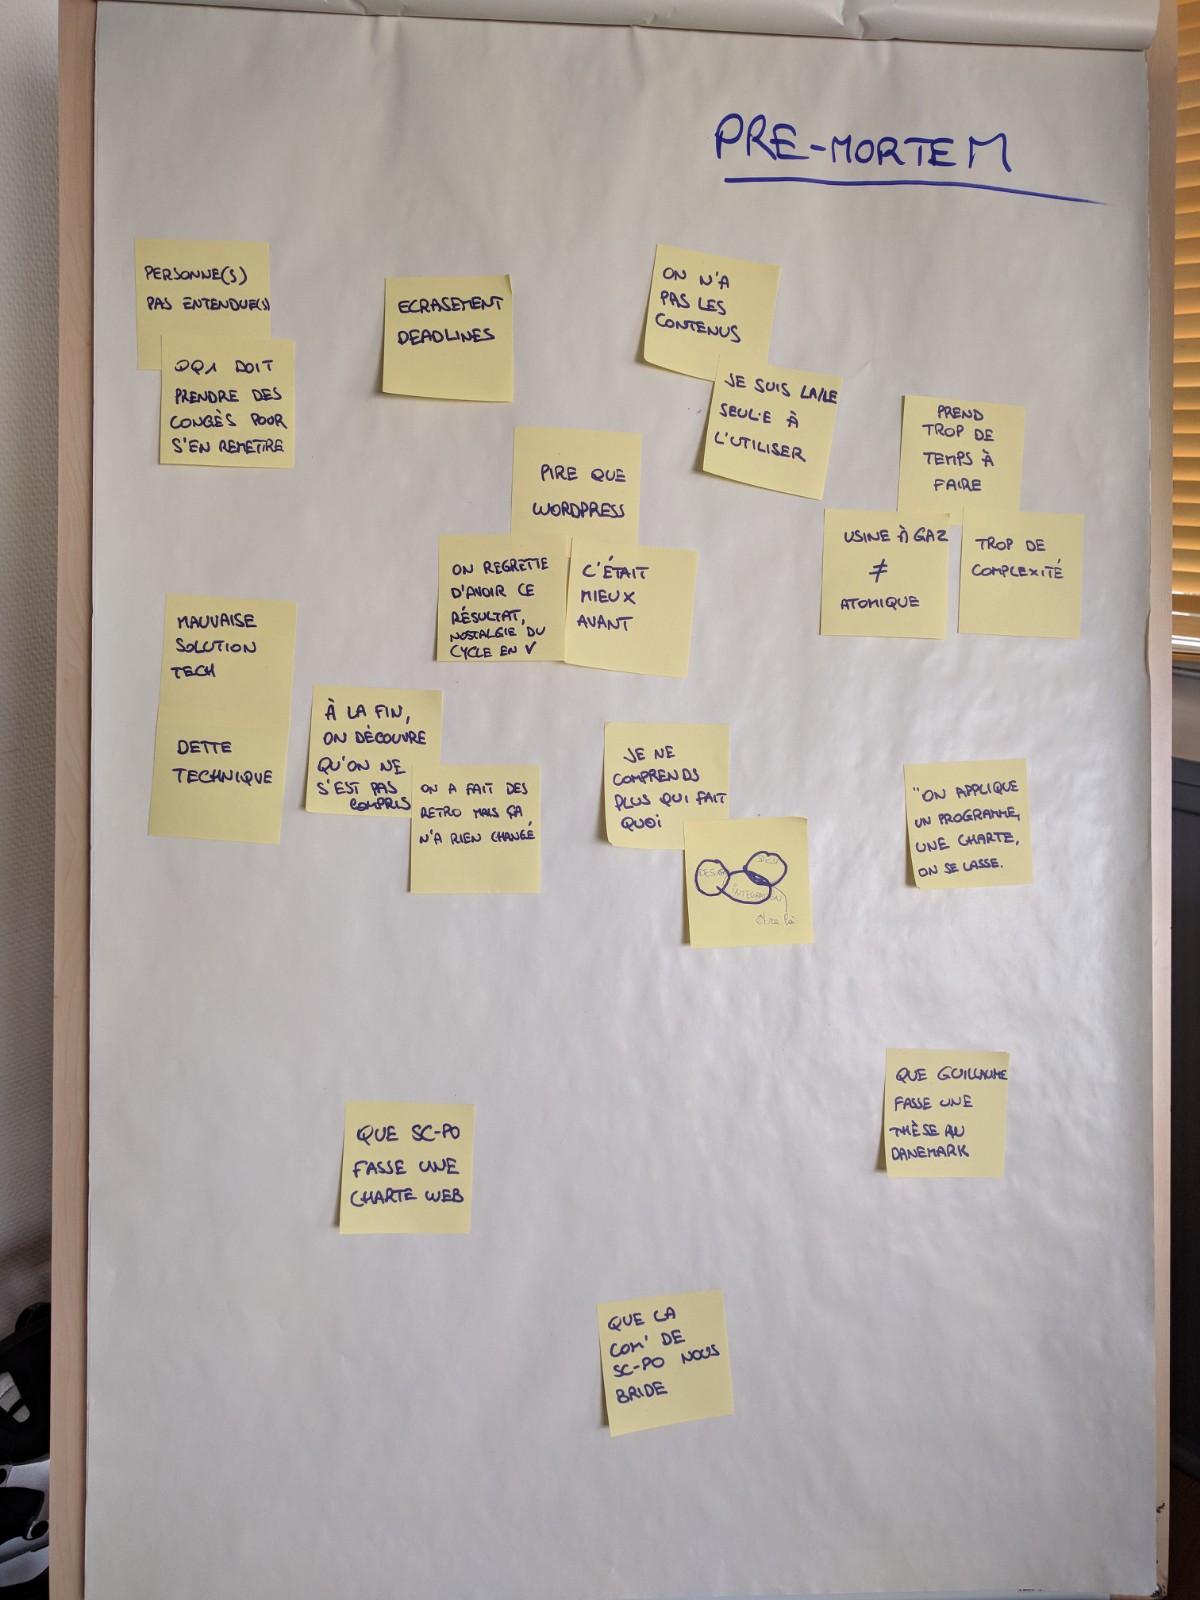 PRE-MORTEM
PERSONNE(S)
PAS ENTENDUE(S)
QQ1 DOIT
PRENDRE DES
CONGÈS POUR
S'EN REMETTRE
ECRASEMENT
DEADLINES
ON N'A
PAS LES
CONTENUS
JE SUIS LA/LE
SEUL·E À
L'UTILISER
PREND
TROP DE
TEMPS À
FAIRE
USINE À GAZ
≠
ATOMIQUE
TROP DE
COMPLEXITÉ
PIRE QUE
WORDPRESS
ON REGRETTE
D'AVOIR CE
RÉSULTAT,
NOSTALGIE DU
CYCLE EN V
C'ÉTAIT
MIEUX
AVANT
MAUVAISE
SOLUTION
TECH
DETTE
TECHNIQUE
À LA FIN,
ON DÉCOUVRE
QU'ON NE
S'EST PAS
COMPRIS
ON A FAIT DES
RETRO MAIS ÇA
N'A RIEN CHANGÉ
JE NE
COMPRENDS
PLUS QUI FAIT
QUOI
DESIGN
INTEGRATION
être là
"ON APPLIQUE
UN PROGRAMME,
UNE CHARTE,
ON SE LASSE.
QUE GUILLAUME
FASSE UNE
THÈSE AU
DANEMARK
QUE SC-PO
FASSE UNE
CHARTE WEB
QUE LA
COM' DE
SC-PO NOUS
BRIDE